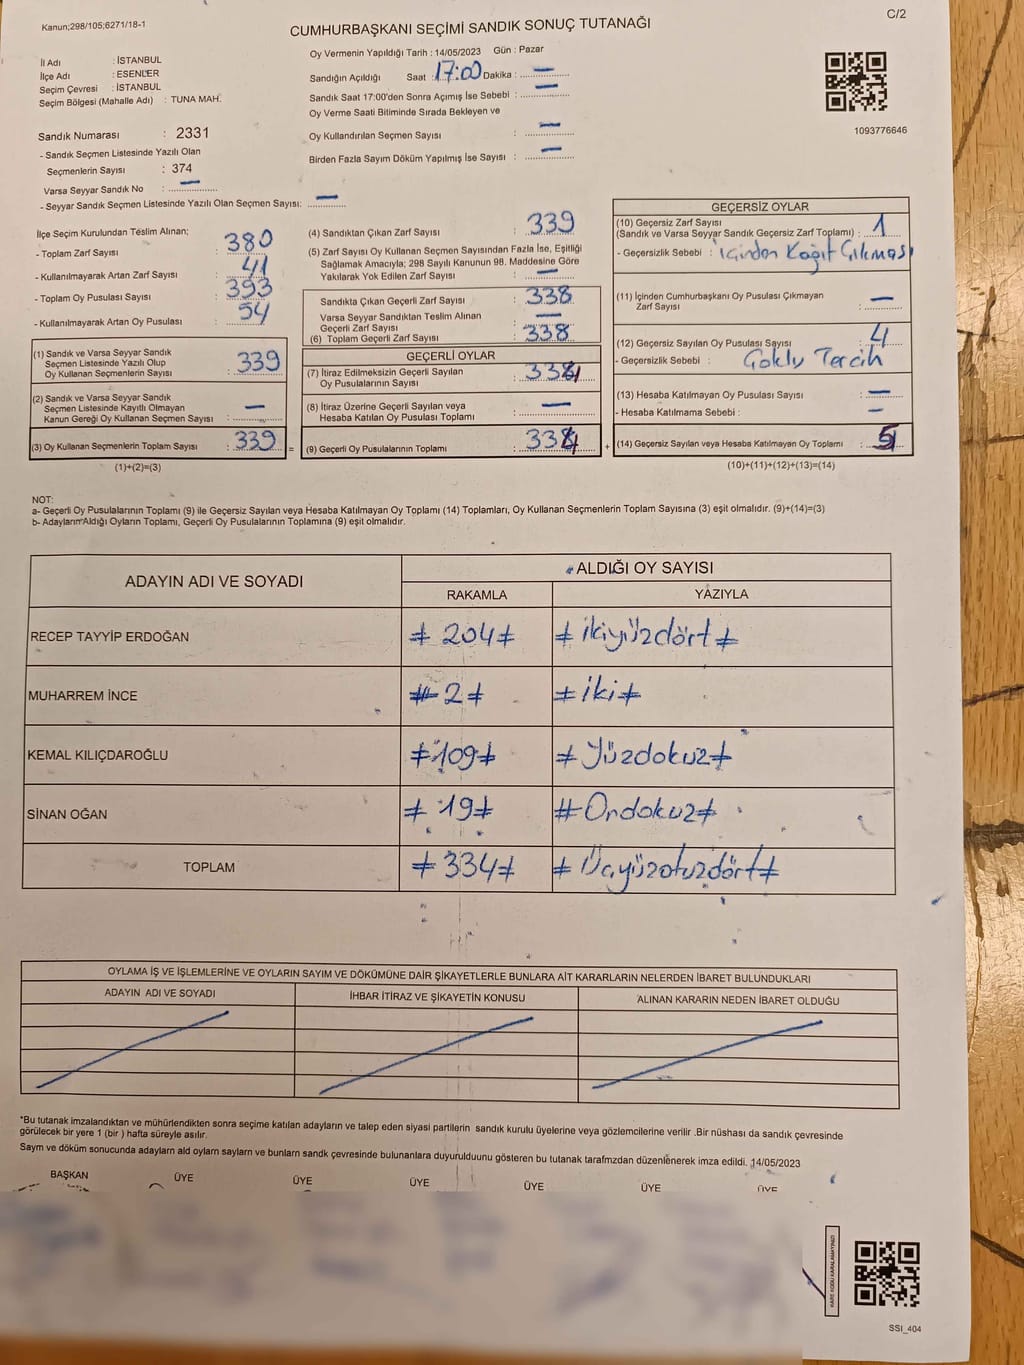 Kanun;298/105;6271/18-1
C/2
CUMHURBAŞKANI SEÇİMİ SANDIK SONUÇ TUTANAĞI
İl Adı : İSTANBUL
İlçe Adı : ESENLER
Seçim Çevresi : İSTANBUL
Seçim Bölgesi (Mahalle Adı) : TUNA MAH.
Oy Vermenin Yapıldığı Tarih : 14/05/2023 Gün : Pazar
Sandığın Açıldığı Saat : 17:00 Dakika : —
Sandık Saat 17:00'den Sonra Açımış İse Sebebi : —
Oy Verme Saati Bitiminde Sırada Bekleyen ve
Oy Kullandırılan Seçmen Sayısı : —
Birden Fazla Sayım Döküm Yapılmış İse Sayısı : —
1093776646
Sandık Numarası : 2331
- Sandık Seçmen Listesinde Yazılı Olan
Seçmenlerin Sayısı : 374
Varsa Seyyar Sandık No : —
- Seyyar Sandık Seçmen Listesinde Yazılı Olan Seçmen Sayısı: —
İlçe Seçim Kurulundan Teslim Alınan;
- Toplam Zarf Sayısı : 380
- Kullanılmayarak Artan Zarf Sayısı : 41
- Toplam Oy Pusulası Sayısı : 393
- Kullanılmayarak Artan Oy Pusulası : 54
(1) Sandık ve Varsa Seyyar Sandık
Seçmen Listesinde Yazılı Olup
Oy Kullanan Seçmenlerin Sayısı : 339
(2) Sandık ve Varsa Seyyar Sandık
Seçmen Listesinde Kayıtlı Olmayan
Kanun Gereği Oy Kullanan Seçmen Sayısı : —
(3) Oy Kullanan Seçmenlerin Toplam Sayısı : 339
(1)+(2)=(3)
(4) Sandıktan Çıkan Zarf Sayısı : 339
(5) Zarf Sayısı Oy Kullanan Seçmen Sayısından Fazla İse, Eşitliği
Sağlamak Amacıyla; 298 Sayılı Kanunun 98. Maddesine Göre
Yakılarak Yok Edilen Zarf Sayısı : —
Sandıkta Çıkan Geçerli Zarf Sayısı : 338
Varsa Seyyar Sandıktan Teslim Alınan
Geçerli Zarf Sayısı : —
(6) Toplam Geçerli Zarf Sayısı : 338
GEÇERLİ OYLAR
(7) İtiraz Edilmeksizin Geçerli Sayılan
Oy Pusulalarının Sayısı : 334
(8) İtiraz Üzerine Geçerli Sayılan veya
Hesaba Katılan Oy Pusulası Toplamı : —
= (9) Geçerli Oy Pusulalarının Toplamı : 334 +
GEÇERSİZ OYLAR
(10) Geçersiz Zarf Sayısı
(Sandık ve Varsa Seyyar Sandık Geçersiz Zarf Toplamı) : 1
- Geçersizlik Sebebi : içinden Kağıt Çıkması
(11) İçinden Cumhurbaşkanı Oy Pusulası Çıkmayan
Zarf Sayısı : —
(12) Geçersiz Sayılan Oy Pusulası Sayısı : 4
- Geçersizlik Sebebi : Çoklu Tercih
(13) Hesaba Katılmayan Oy Pusulası Sayısı : —
- Hesaba Katılmama Sebebi : —
(14) Geçersiz Sayılan veya Hesaba Katılmayan Oy Toplamı : 5
(10)+(11)+(12)+(13)=(14)
NOT:
a- Geçerli Oy Pusulalarının Toplamı (9) ile Geçersiz Sayılan veya Hesaba Katılmayan Oy Toplamı (14) Toplamları, Oy Kullanan Seçmenlerin Toplam Sayısına (3) eşit olmalıdır. (9)+(14)=(3)
b- Adayların Aldığı Oyların Toplamı, Geçerli Oy Pusulalarının Toplamına (9) eşit olmalıdır.
ADAYIN ADI VE SOYADI
ALDIĞI OY SAYISI
RAKAMLA YAZIYLA
RECEP TAYYİP ERDOĞAN # 204 # # ikiyüzdört #
MUHARREM İNCE # 2 # # iki #
KEMAL KILIÇDAROĞLU # 109 # # Yüzdokuz #
SİNAN OĞAN # 19 # # Ondokuz #
TOPLAM # 334 # # Üçyüzotuzdört #
OYLAMA İŞ VE İŞLEMLERİNE VE OYLARIN SAYIM VE DÖKÜMÜNE DAİR ŞİKAYETLERLE BUNLARA AİT KARARLARIN NELERDEN İBARET BULUNDUKLARI
ADAYIN ADI VE SOYADI İHBAR İTİRAZ VE ŞİKAYETİN KONUSU ALINAN KARARIN NEDEN İBARET OLDUĞU
*Bu tutanak imzalandıktan ve mühürlendikten sonra seçime katılan adayların ve talep eden siyasi partilerin sandık kurulu üyelerine veya gözlemcilerine verilir .Bir nüshası da sandık çevresinde
görülecek bir yere 1 (bir ) hafta süreyle asılır.
Saym ve döküm sonucunda adaylarn ald oylarn saylarn ve bunlarn sandk çevresinde bulunanlara duyurulduunu gösteren bu tutanak tarafmzdan düzenlenerek imza edildi. 14/05/2023
BAŞKAN ÜYE ÜYE ÜYE ÜYE ÜYE ÜYE
SSI_404